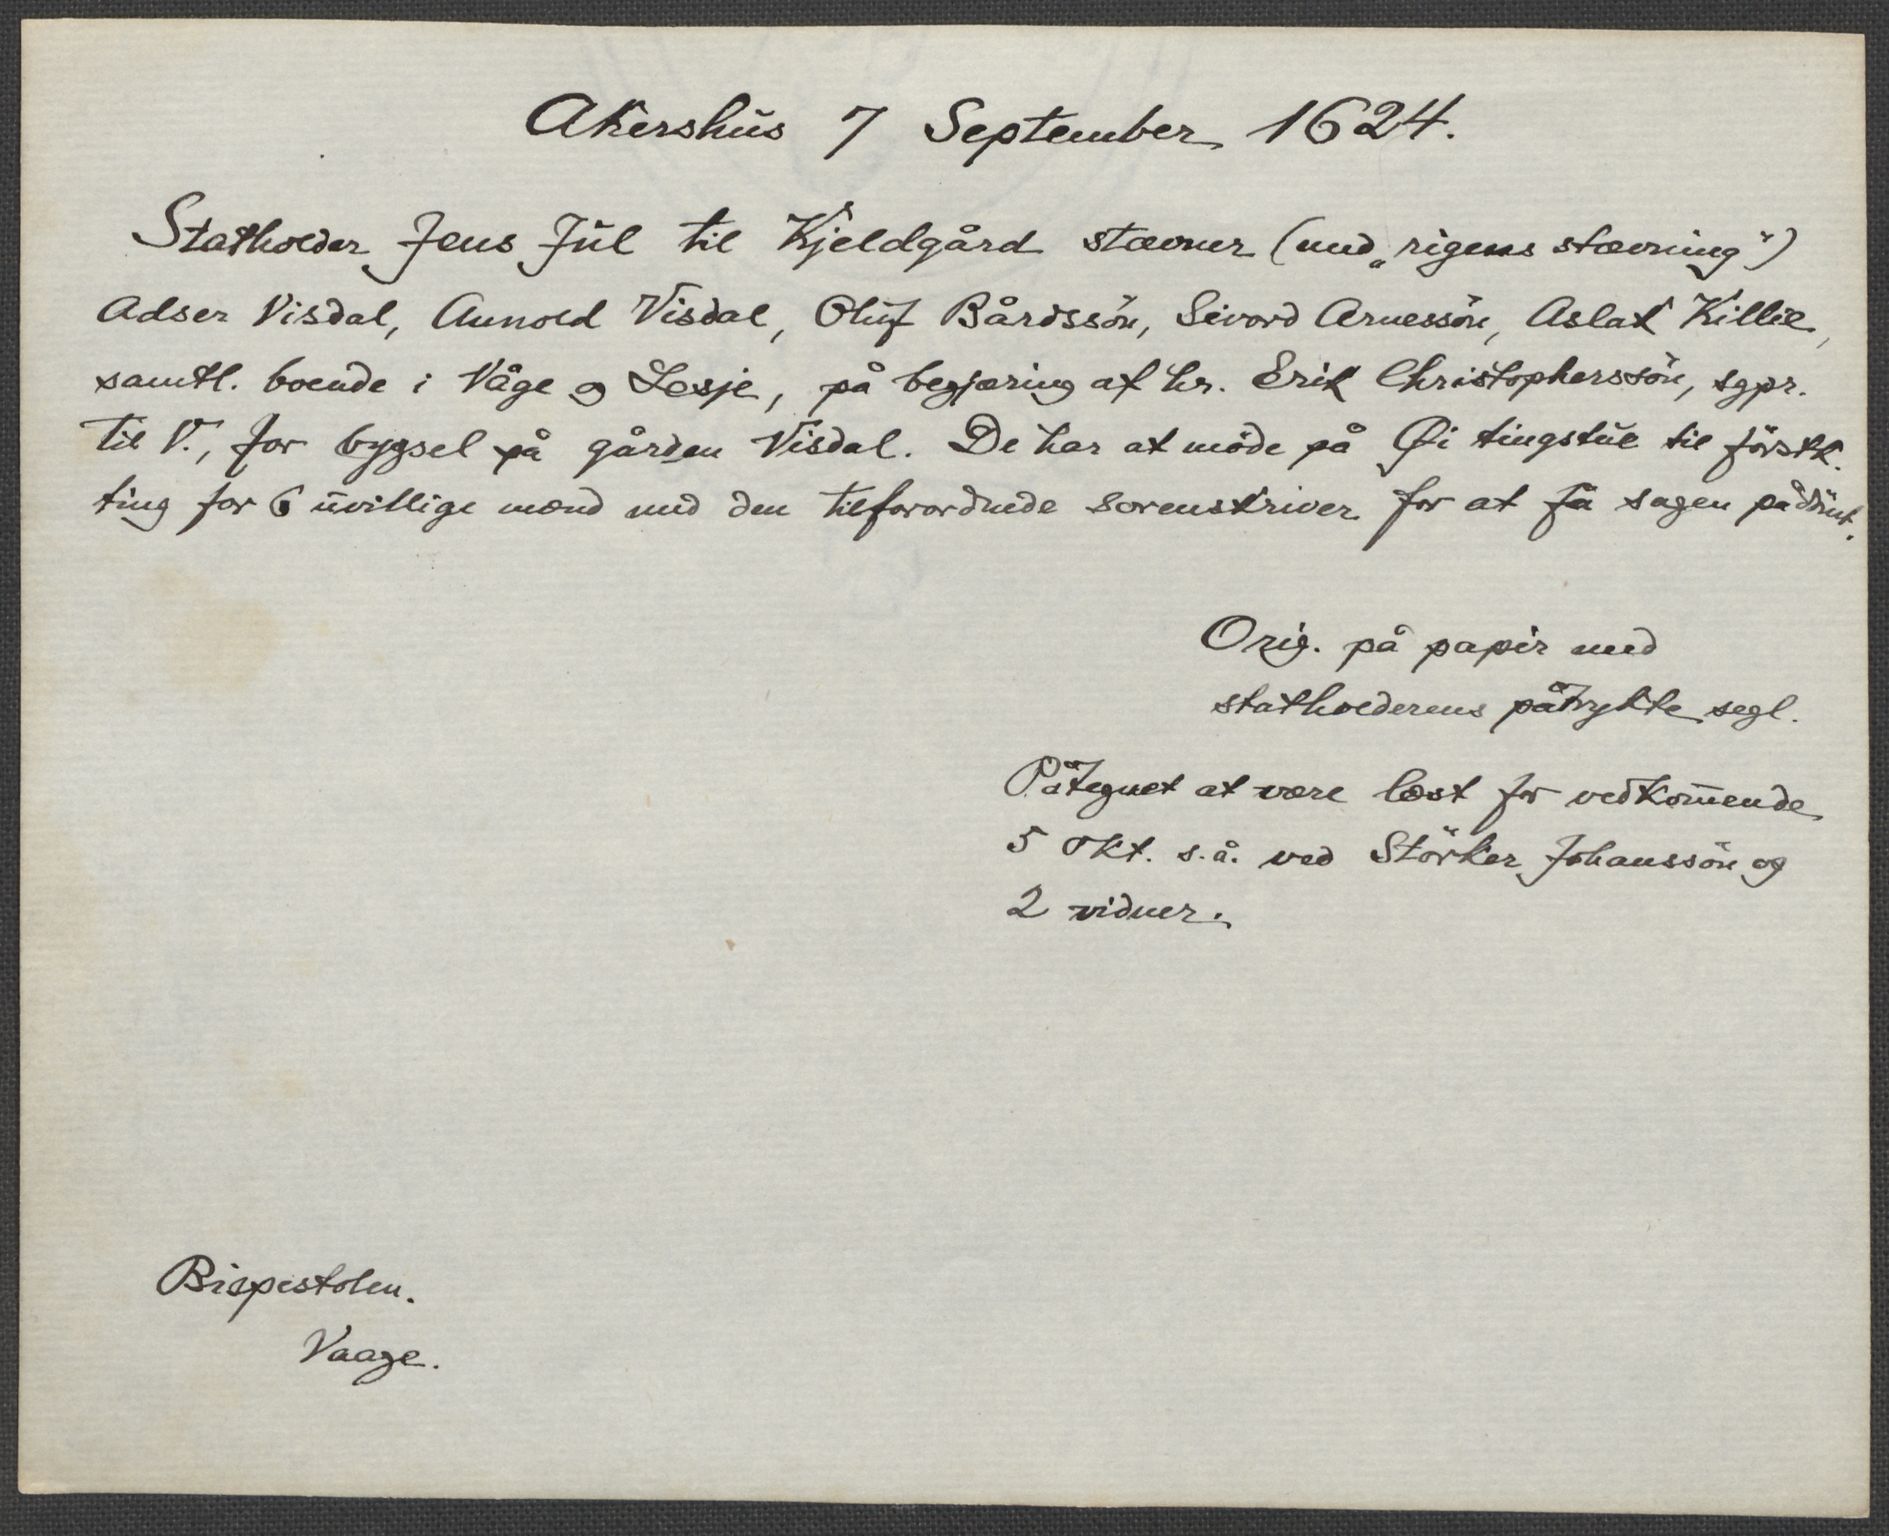 Akershus 7 September 1624.
Statholder Jens Jul til Kjeldgård stævner (med „rigens stævning“)
Adser Visdal, Amnold Visdal, Oluf Bårdssön, Sivord Arnessön, Aslak Killie,
samtl. boende i Våge og Lesje, på begjæring af hr. Erik Christopherssön, sgpr.
til V., for bygsel på gården Visdal. De har at möde på Øi tingstue til förstk.
ting for 6 uvillige mænd med den tilforordnede sorenskriver for at få sagen pådömt.
Orig. på papir med
statholderens påtrykte segl.
Påtegnet at være læst for vedkom̅ende
5 Okt. s.å. ved Störker Johanssön og
2 vidner.
Bispestolen.
Vaage.